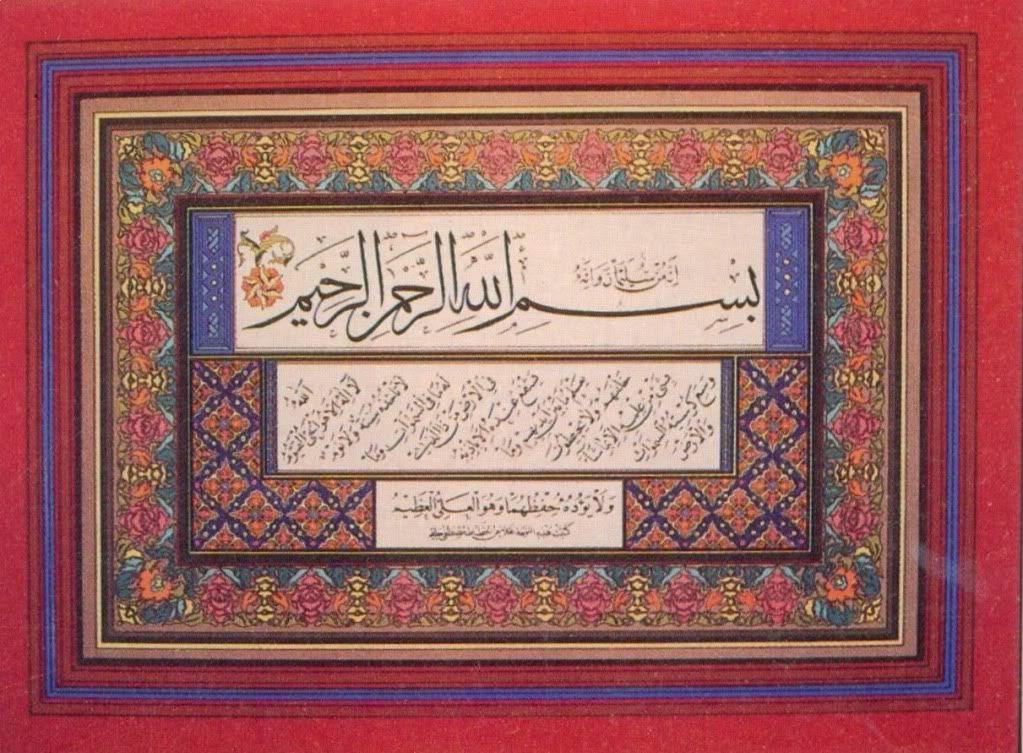 إنه من سليمان وإنه
بسم الله الرحمن الرحيم
الله
لا إله إلا هو الحي القيوم
لا تأخذه سنة ولا نوم
له ما في السموات وما
في الأرض من ذا الذي
يشفع عنده إلا بإذنه
يعلم ما بين أيديهم وما
خلفهم ولا يحيطون
بشيء من علمه إلا بما شاء
وسع كرسيه السموات
والأرض
وَلَا يَؤُدُهُ حِفْظُهُمَا وَهُوَ الْعَلِيُّ الْعَظِيمُ
كتبت هذه